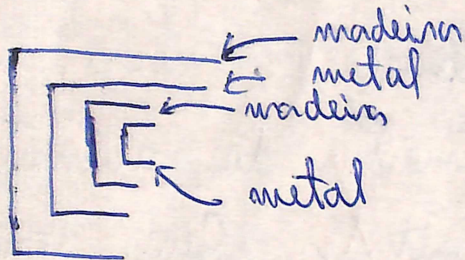 madeira
metal
madeira
metal